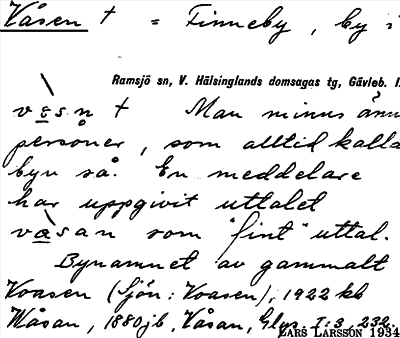 Våsen † = Finneby, by i
Ramsjö sn, V. Hälsinglands domsagas tg, Gävleb. l.
våsn † Man minns ännu
personer, som alltid kalla
byn så. En meddelare
har uppgivit uttalet
våsan som "fint" uttal.
Bynamnet av gammalt
Voasen (Sjön: Voasen); 1922 kb
Måsan, 1880 jb, Våsan, Glys. I:3, 232.
LARS LARSSON 1934